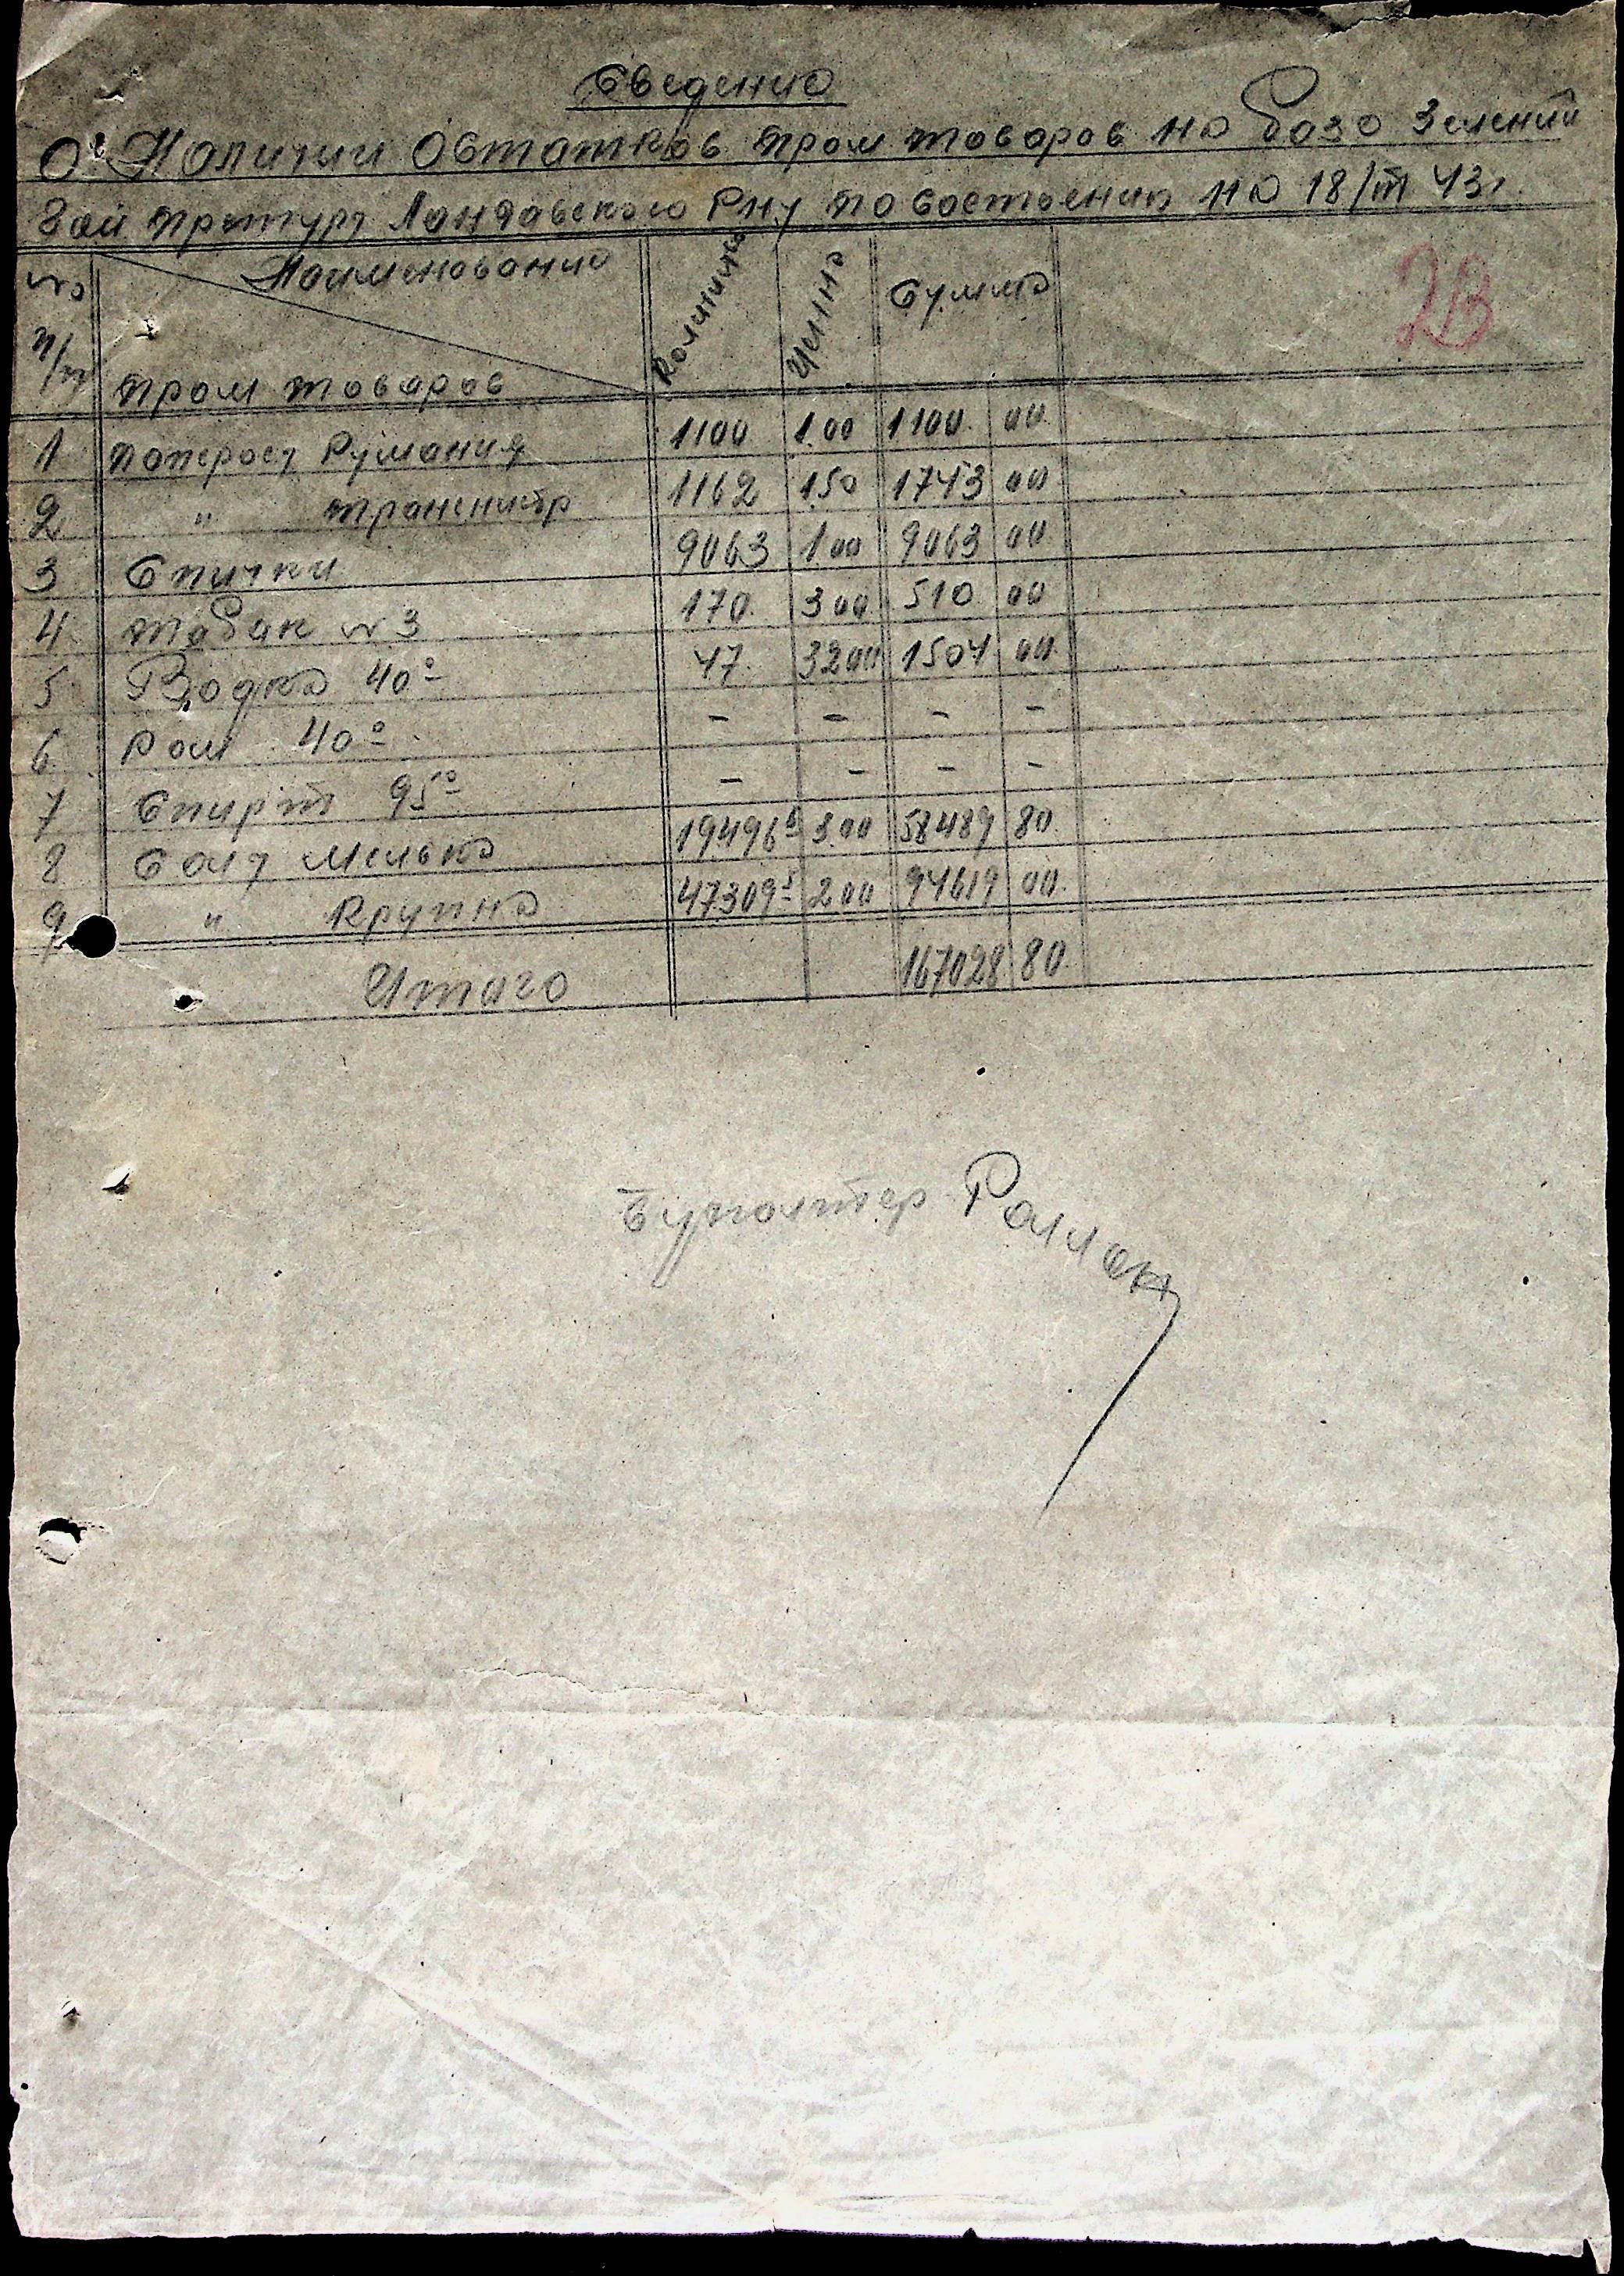 Сведение
О Наличии Остатков пром товаров на базе Зелений
Гай претуры Ландавского Рну по Состоянию на 18/III 43г.
№ п/п Наименование пром товаров Количество Цена Сумма
23
1 Папиросы Румания 1100 1.00 1100. 00
2 " транснистр 1162 1.50 1743 00
3 Спички 9063 1.00 9063 00
4 табак №3 170. 3 00 510 00
5 Водка 40° 47. 32 00 1504 00
6 Ром 40° - - - -
7 Спирт 95° - - - -
8 Соль Мелька 19496⁶ 3.00 58489 80
9 " Крупна 47309⁵ 2.00 94619 00
Итого 167028 80
Бухгалтер